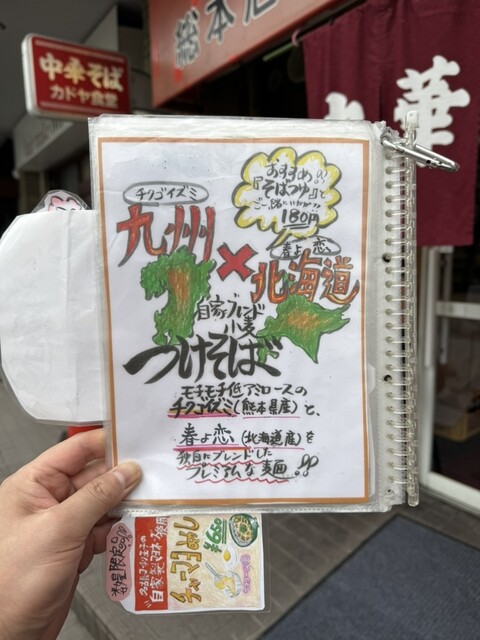 総本店
中華そば
カドヤ食堂
華
おすすめ!!
『そばつゆ』も
ご一緒にいかが??
180円
チクゴイズミ
九州
×
春よ恋
北海道
自家ブレンド
小麦
つけそば
モチモチ低アミロースの
チクゴイズミ(熊本県産)と、
春よ恋(北海道産)を
独自にブレンドした
プレミアムな麺!!
数量限定
自家製マヨネーズ使用
チャーマヨめし
¥650